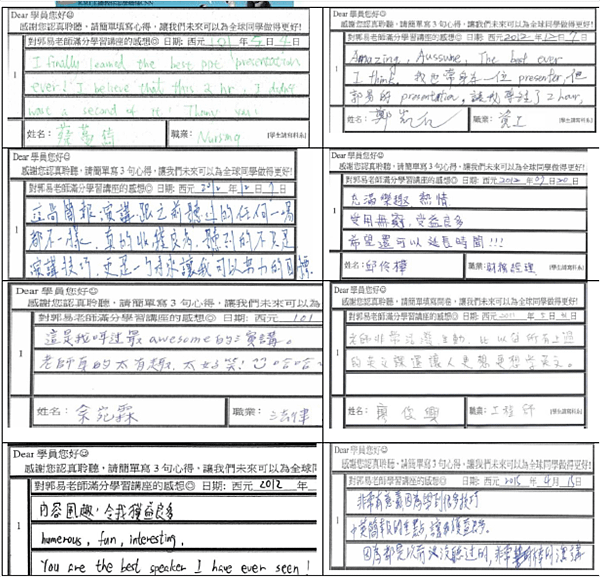 感謝您認真聆聽,請簡單填寫心得,讓我們未來可以為全球同學做得更好!
對郭易老師滿分學習講座的感想☺ 日期: 西元 101 年 5 月 4 日
1
I finally learned the best ppt presentation
ever! I believe that this 2 hr, I didn't
waste a second of it! Thank you!
姓名:
職業: Nursing
[學生請寫科系]
Dear 學員您好☺
感謝您認真聆聽,請簡單寫 3 句心得,讓我們未來可以為全球同學做得更好!
對郭易老師滿分學習講座的感想☺ 日期: 西元 2012 年 12 月 7 日
1
Amazing, Aussume, The best ever
I think. 我也常身在一位 presenter, 但
郭易的 presentation, 讓我專注了 2 hour,
姓名: 鄭
職業:
[學生請寫科系]
Dear 學員您好☺
感謝您認真聆聽,請簡單寫 3 句心得,讓我們未來可以為全球同學做得更好!
對郭易老師滿分學習講座的感想☺ 日期: 西元 2012 年 12 月 7 日
1
這場簡報演講,跟之前聽過的任何一場
都不一樣,真的收穫良多,聽到的不只是
演講技巧,更是一個未來讓我可以努力的目標.
Dear 學員您好☺
感謝您認真聆聽,請簡單寫 3 句心得,讓我們未來可以為全球同學做得更好!
對郭易老師滿分學習講座的感想☺ 日期: 西元 2012 年 07 月 20 日
1
充滿樂趣 熱情
受用無窮,受益良多
希望還可以延長時間!!!
姓名: 邱
職業: 財務經理
[學生請寫科系]
Dear 學員您好☺
感謝您認真聆聽,請簡單寫 3 句心得,讓我們未來可以為
對郭易老師滿分學習講座的感想☺ 日期: 西元 101
1
這是我聽過最 awesome 的演講。
老師真的太有趣,太好笑! 哈哈
姓名: 余宛霖
職業: 法律
Dear 學員您好☺
感謝您認真聆聽,請簡單填寫問卷,讓我們未來可以為全球同學做得更好!
對郭易老師滿分學習講座的感想☺ 日期: 西元 2011 年
1
老師非常活潑生動,比以前所有上過
的英文課還讓人更想要學英文。
姓名: 廖俊
職業: 工程師
[學生請寫科系]
Dear 學員您好☺
感謝您認真聆聽,請簡單寫 3 句心得,讓我們未來可以為全球
對郭易老師滿分學習講座的感想☺ 日期: 西元 2012 年
1
內容風趣,令我獲益良多
humerous, fun, interesting,
You are the best speaker I have ever seen!
Dear 學員您好☺
感謝您認真聆聽,請簡單寫 3 句心得,讓我們未來可以為全球同學做得更好!
對郭易老師滿分學習講座的感想☺ 日期: 西元 2015 年 4 月 15 日
1
非常有意義因為學到很多技巧
十資簡報的重點,讓我獲益
因為都是以前沒聽過的,非常棒的演講